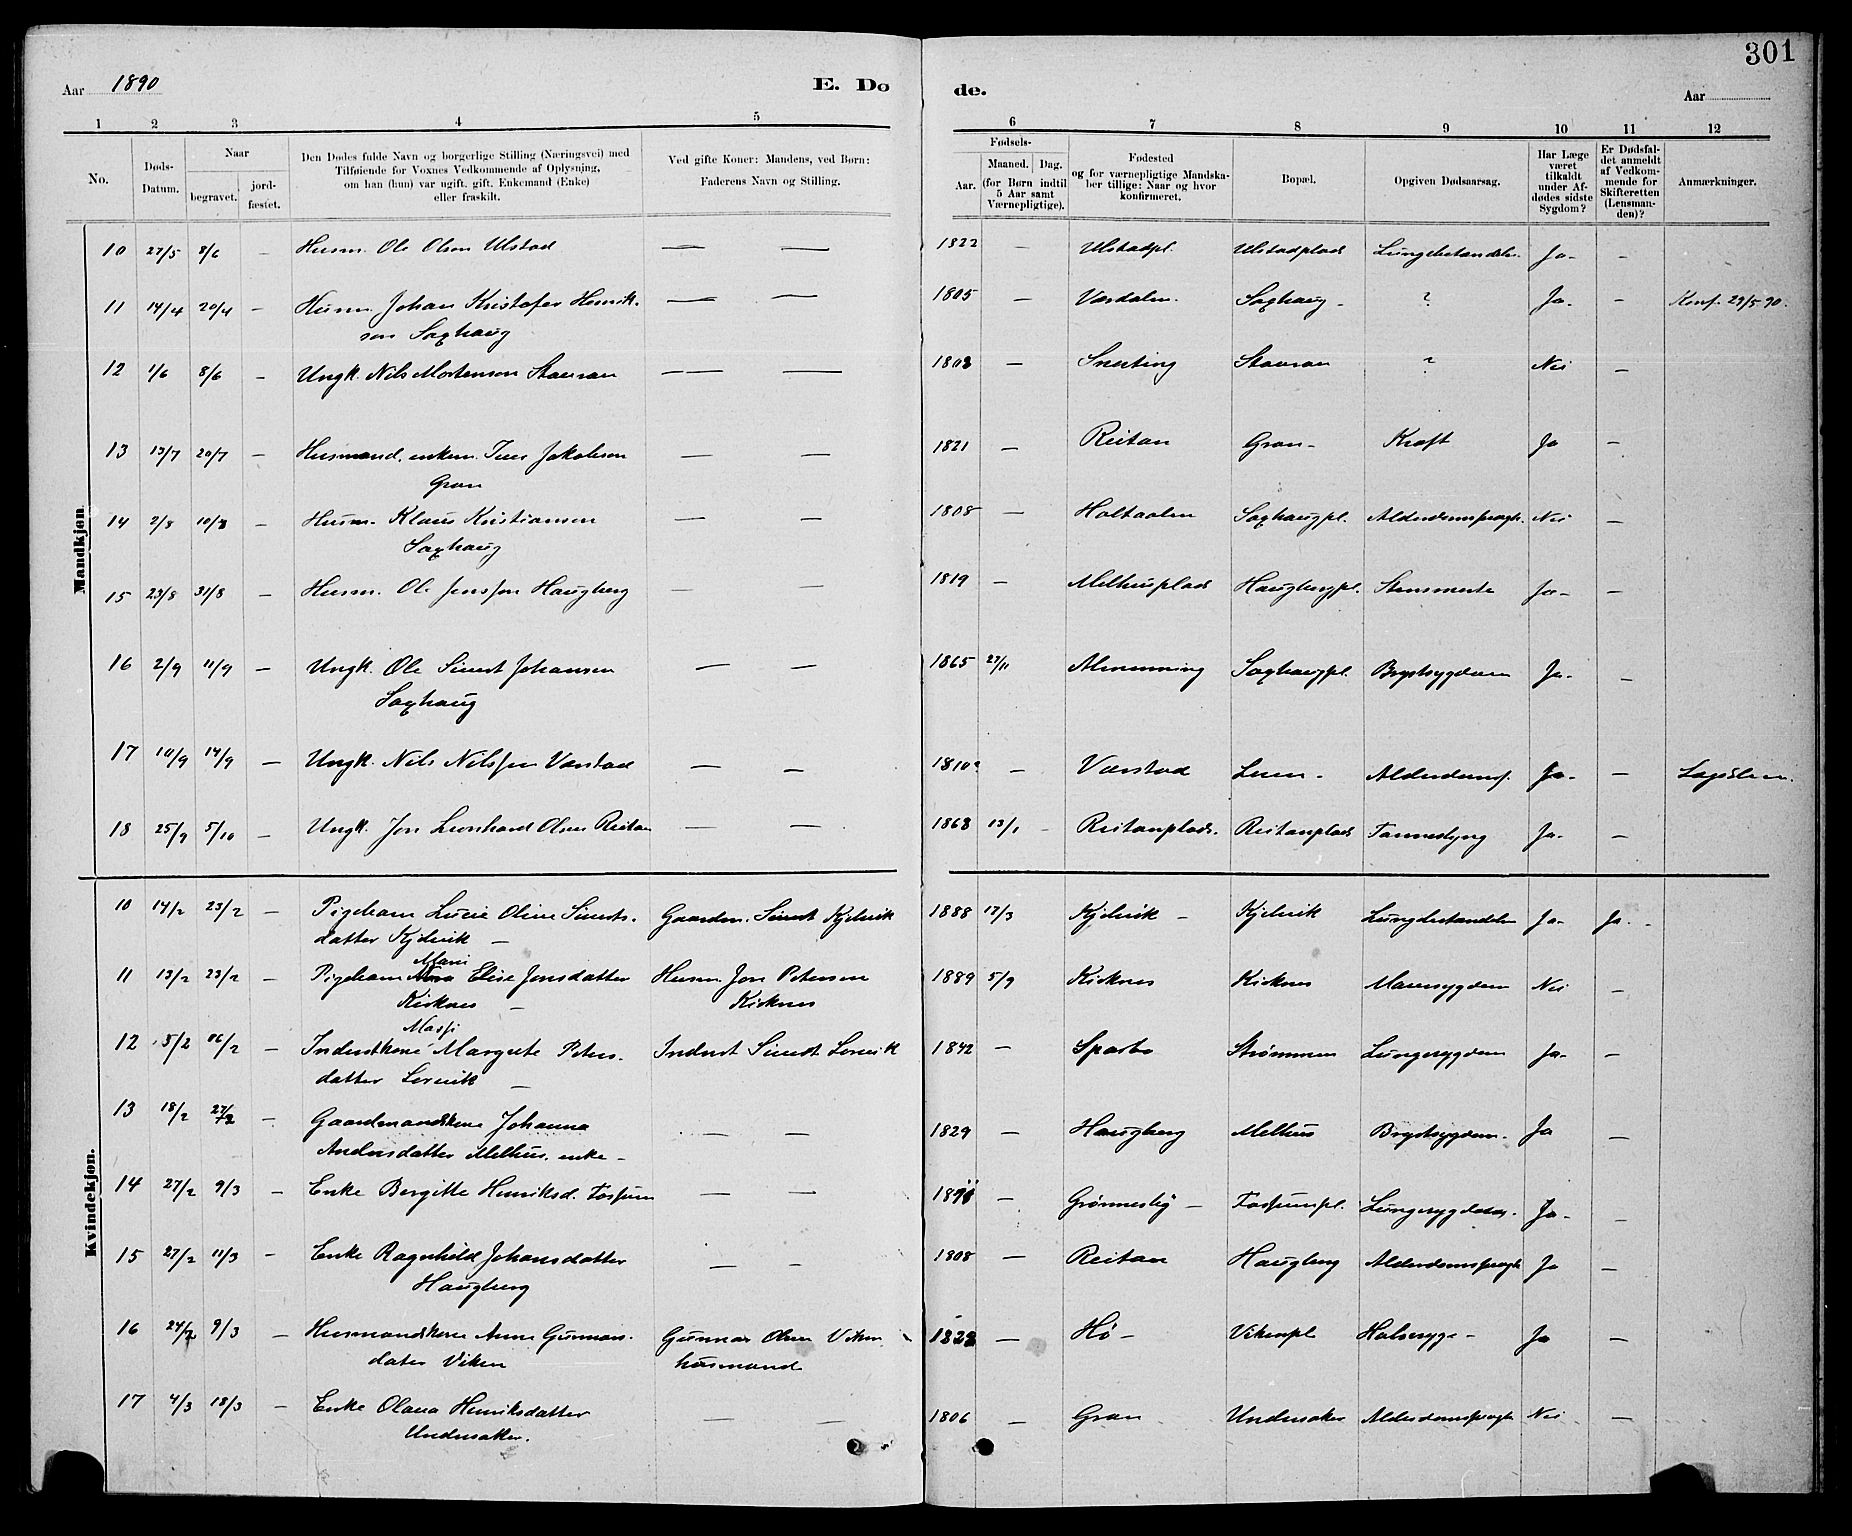 301
Aar 1890
E. Do
de.
Aar
1 2 3 4 5
6 7 8 9 10 11 12
No.
Døds-
Datum.
Naar
begravet.
jord-
fæstet.
Den Dødes fulde Navn og borgerlige Stilling (Næringsvei) med
Tilføiende for Voxnes Vedkommende af Oplysning,
om han (hun) var ugift, gift, Enkemand (Enke)
eller fraskilt.
Ved gifte Koner: Mandens, ved Børn:
Faderens Navn og Stilling.
Fødsels-
Aar.
Maaned. Dag.
(for Børn indtil
5 Aar samt
Værnepligtige).
Fødested
og for værnepligtige Mandska-
ber tillige: Naar og hvor
konfirmeret.
Bopæl.
Opgiven Dødsaarsag.
Har Læge
været
tilkaldt
under Af-
dødes sidste
Sygdom?
Er Dødsfal-
det anmeldt
af Vedkom-
mende for
Skifteretten
(Lensman-
den)?
Anmærkninger.
Mandkjøn.
10 27/5 8/6 - Husm. Ole Olsen Ulstad — — 1822 - Ulstadpl. Ulstadplads Lungebetændelse. Ja- -
11 14/4 20/4 - Husm. Johan Kristofer Henrik- — — 1805 - Værdalen. Saxhaug - ? Ja- - Konf. 29/5 90.
sen Saxhaug
12 1/6 8/6 - Ungk. Nils Mortenson Stavran — — 1803 - Snerting Stavran ? Nei -
13 13/7 20/7 - Husmand. enkem. Jakobson — — 1821 - Reitan Gran- Kræft Ja -
Gran
14 2/8 10/8 - Husm. Klaus Kristiansen — — 1808 - Holtaalen Saxhaugpl. Alderdomssvagh. Nei -
Saxhaug
15 23/8 31/8 - Husm. Ole Jenssen Haugberg - — 1819 - Melhusplads Haugbergpl. Stensmerte Ja- -
16 2/9 11/9 - Ungk. Ole Sivert Johansen — — 1865 27/11 Almenning Saxhaugpl. Brystsygdom Ja- -
Saxhaug
17 10/9 14/9 - Ungk. Nils Nilssen Værstad — — 1810? - Værstad Leren- Alderdomss. Ja- - Lægdslem.
18 25/9 5/10 - Ungk. Jon Leonhard Olsen Reitan — — 1868 13/1 - Reitanplads. Reitanplads Ja- -
Kvindekjøn.
10 14/2 23/2 - Pigebarn Lucie Oline Siverts- Gaardm. Sivert Kjelvik 1888 17/3 Kjelvik - Kjelvik Lungebetændelse Ja- Ja-
datter Kjelvik -
Marie
11 13/2 23/2 - Pigebarn Elise Jonsdatter Husm. Jon Petersen 1889 5/9 Kirknes Kirknes Mavesygdom Nei -
Kirknes - Kirknes
Massi
12 5/2 16/2 - Inderstkone Margrete Peters- Inderst Sivert Lervik 1842 - Sparbo Strømmen Lungesygdom Ja- -
datter Lervik -
13 18/2 27/2 - Gaardmandskone Johanna — — 1829 - Haugberg Melhus Brystsygdom. Ja -
Andersdatter Melhus. enke -
14 27/2 9/3 - Enke Bergitte Henriksd. Fossum — — - Grønnesby - Fossumpl. Lungesygdom. Ja- -
15 27/2 11/3 - Enke Ragnhild Johansdatter — — 1808 - Reitan Haugberg Alderdomssvagh Ja -
Haugberg
16 24/2 9/3 - Husmandskone Anne Gunnars- Gunnar Olsen Viken 1822 - Hø- Vikenpl Halssyge- Ja -
datter Viken husmand
17 4/3 18/3 - Enke Olava Henriksdatter — — 1806 - Gran Undersaker Alderdomssvagh Nei -
Undersaker.